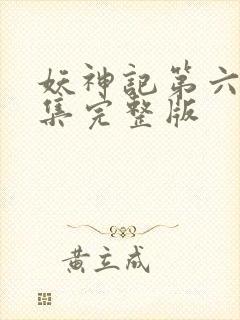 妖神記第六
集完整版
黄立成